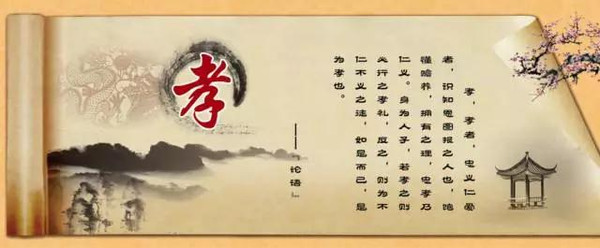 孝
孝，孝者，忠义仁爱
者，识知恩图报之人也，
懂养，拥有之理，忠孝乃
仁义。身为人子，若孝之则
行之孝礼，之，则为不
仁不义之，如是而已，是
为孝也。
——『论语』